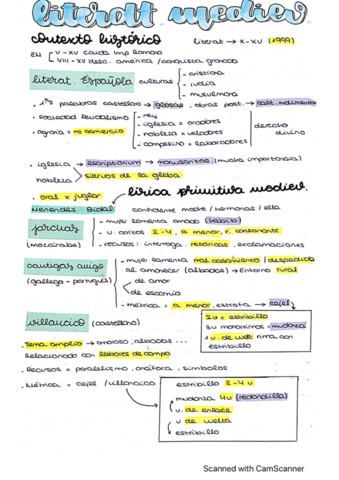 literatt mediev
contexto histórico literat → X-XV (1999)
EM V-XV caída Imp Romano
VIII-XV desc. américa / conquista granada
literat. Española culturas - cristiana
- judía
- musulmana
1ªs palabras castellano → glosas, obras post. → cast. rudimento
sociedad feudalismo - rey
- iglesia = oradores
- nobleza = veladores
- campesino = laboradores
derecho divino
agraria = no comercio
iglesia → escriptorium → manuscritos (mucha importancia)
nobleza siervos de la gleba
oral x juglar
lírica primitiva mediev.
Menéndez Pidal confidente madre / hermanas / ella
jarchas (mozárabe)
- mujer lamenta amado (habib)
- v. cortos 2-4, a menor, r. consonante
- recursos: interroga. retóricas, exclamaciones
cantigas amigo (gallego - portugués)
- mujer lamenta no casamiento / despedida
al amanecer (albadas) → Entorno rural
- de amor
- de escarnio
- métrica = a menor, estrofa → zéjel
2v = estribillo
3v monorrimos = mudanza
1v. de vuelt rima con
estribillo
villancico (castellano)
Tema amplio → amoroso, albadas ...
Relacionado con labores de campo
Recursos = paralelismo, anáfora, símbolos
Métrica = zejel / villancico
estribillo 2-4 v
mudanza 4v (redondilla)
v. de enlace
v de vuelta
estribillo
Scanned with CamScanner